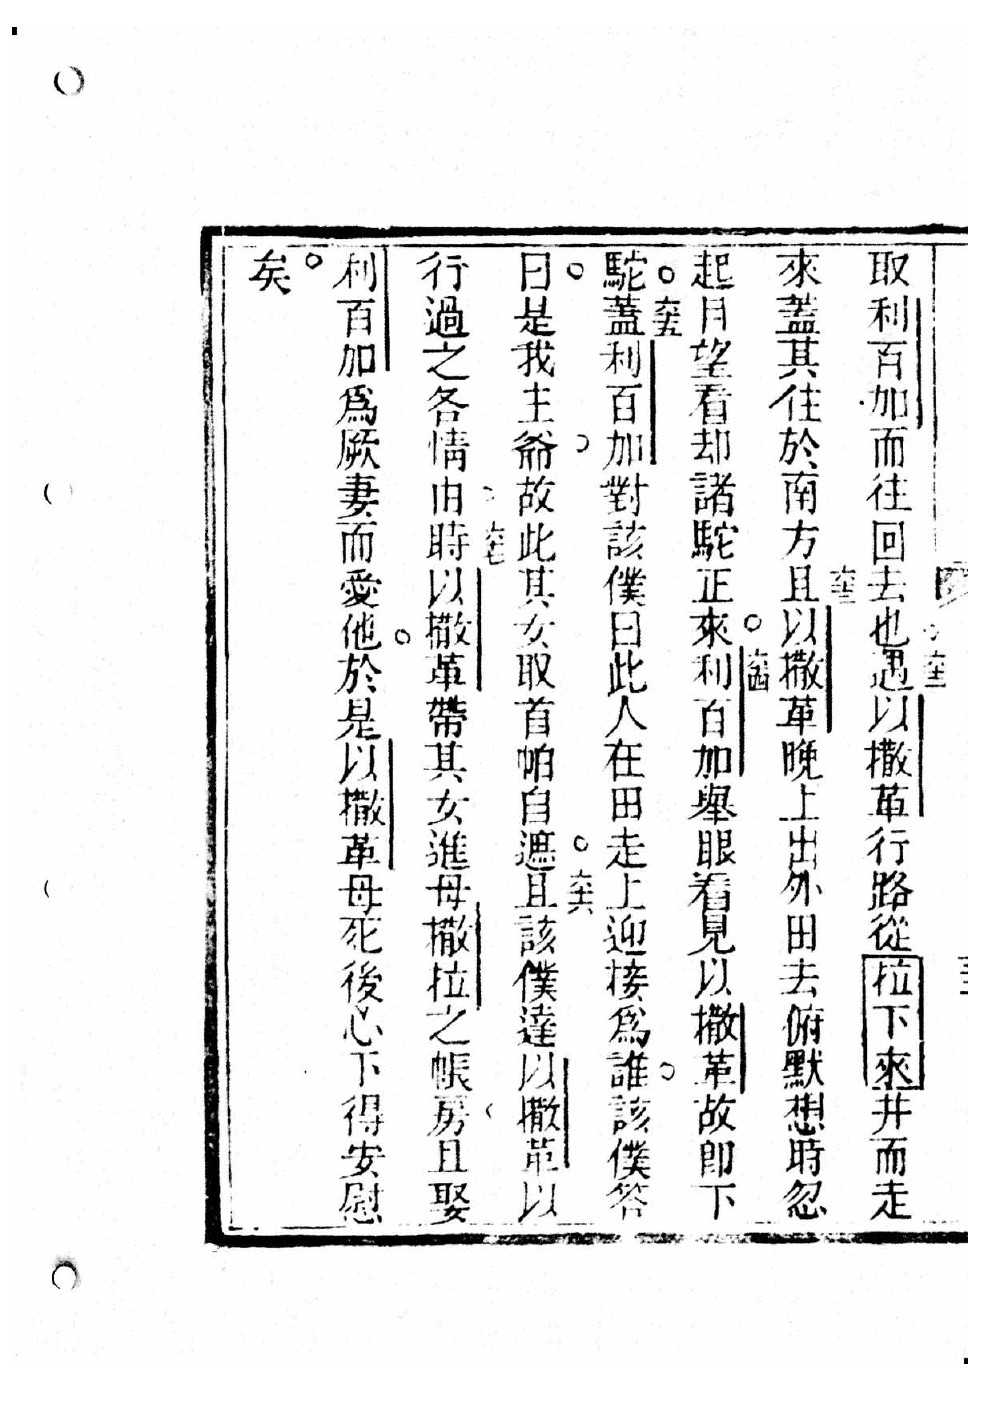 取利百加而往回去也。六十二遇以撒革行路從拉下來井而走
來蓋其住於南方六十三且以撒革晚上出外田去俯默想時忽
起目望看却諸駝正來。六十四利百加舉眼看見以撒革故即下
駝。六十五蓋利百加對該僕曰此人在田走上迎接爲誰。該僕答
曰。是我主爺。故此其女取首帕自遮。六十六且該僕達以撒革以
行過之各情由。六十七時以撒革帶其女進母撒拉之帳房且娶
利百加爲厥妻而愛他。於是以撒革母死後心下得安慰
矣。